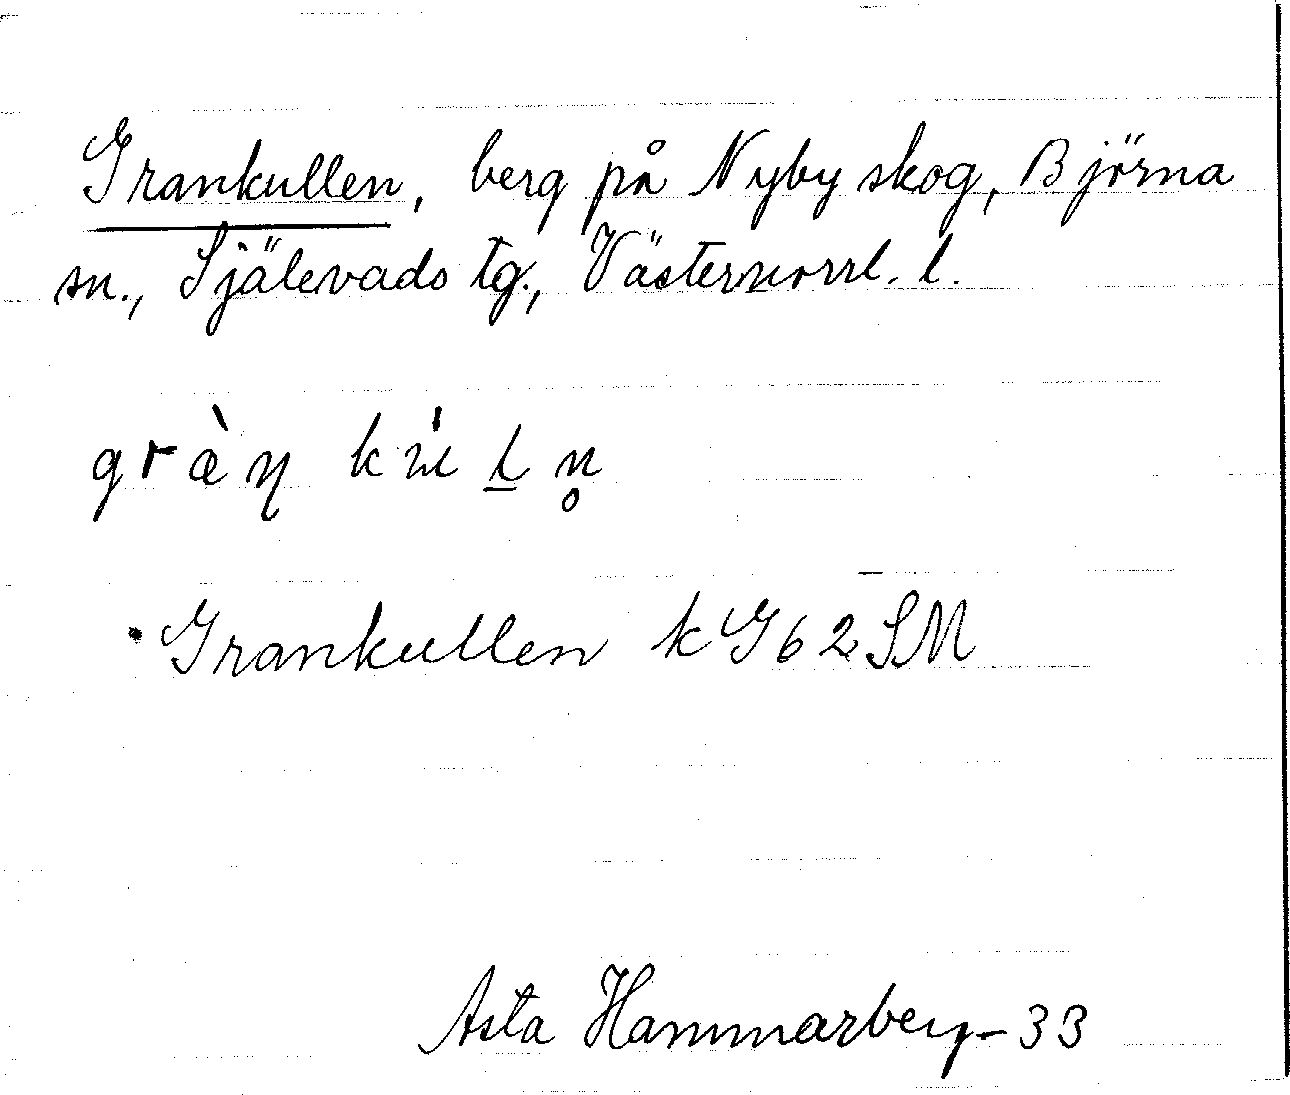 Grankullen, berg på Nyby skog, Björna
sn., Själevads tg., Västernorrl. l.
Grankullen k G62 SM
Asta Hammarberg - 33